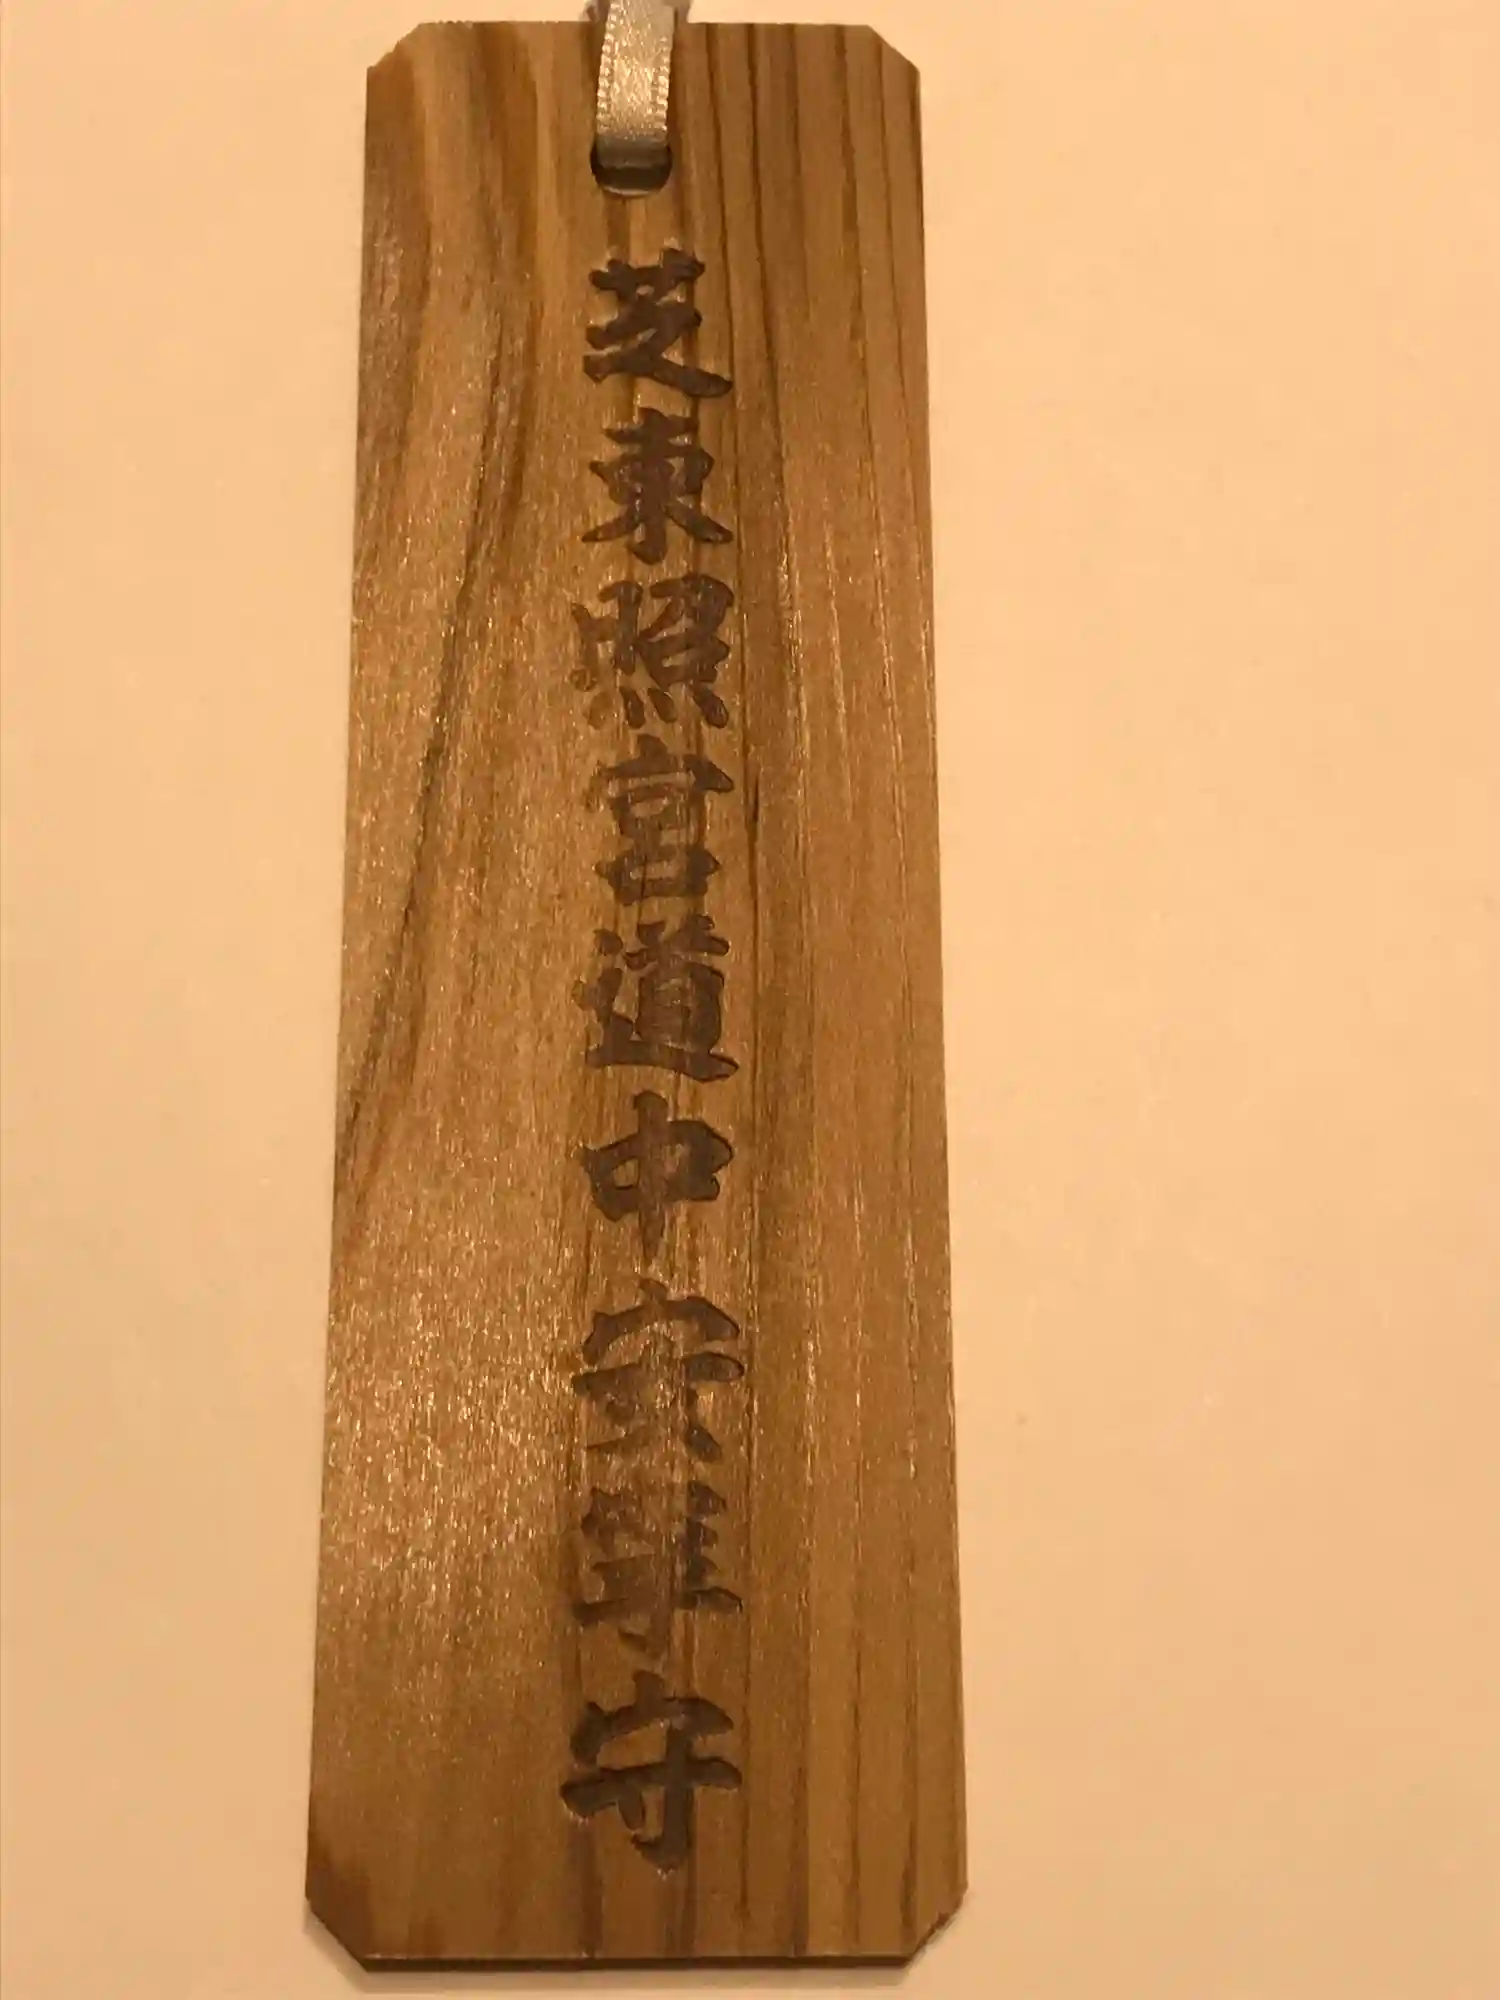 芝東照宮道中安全守